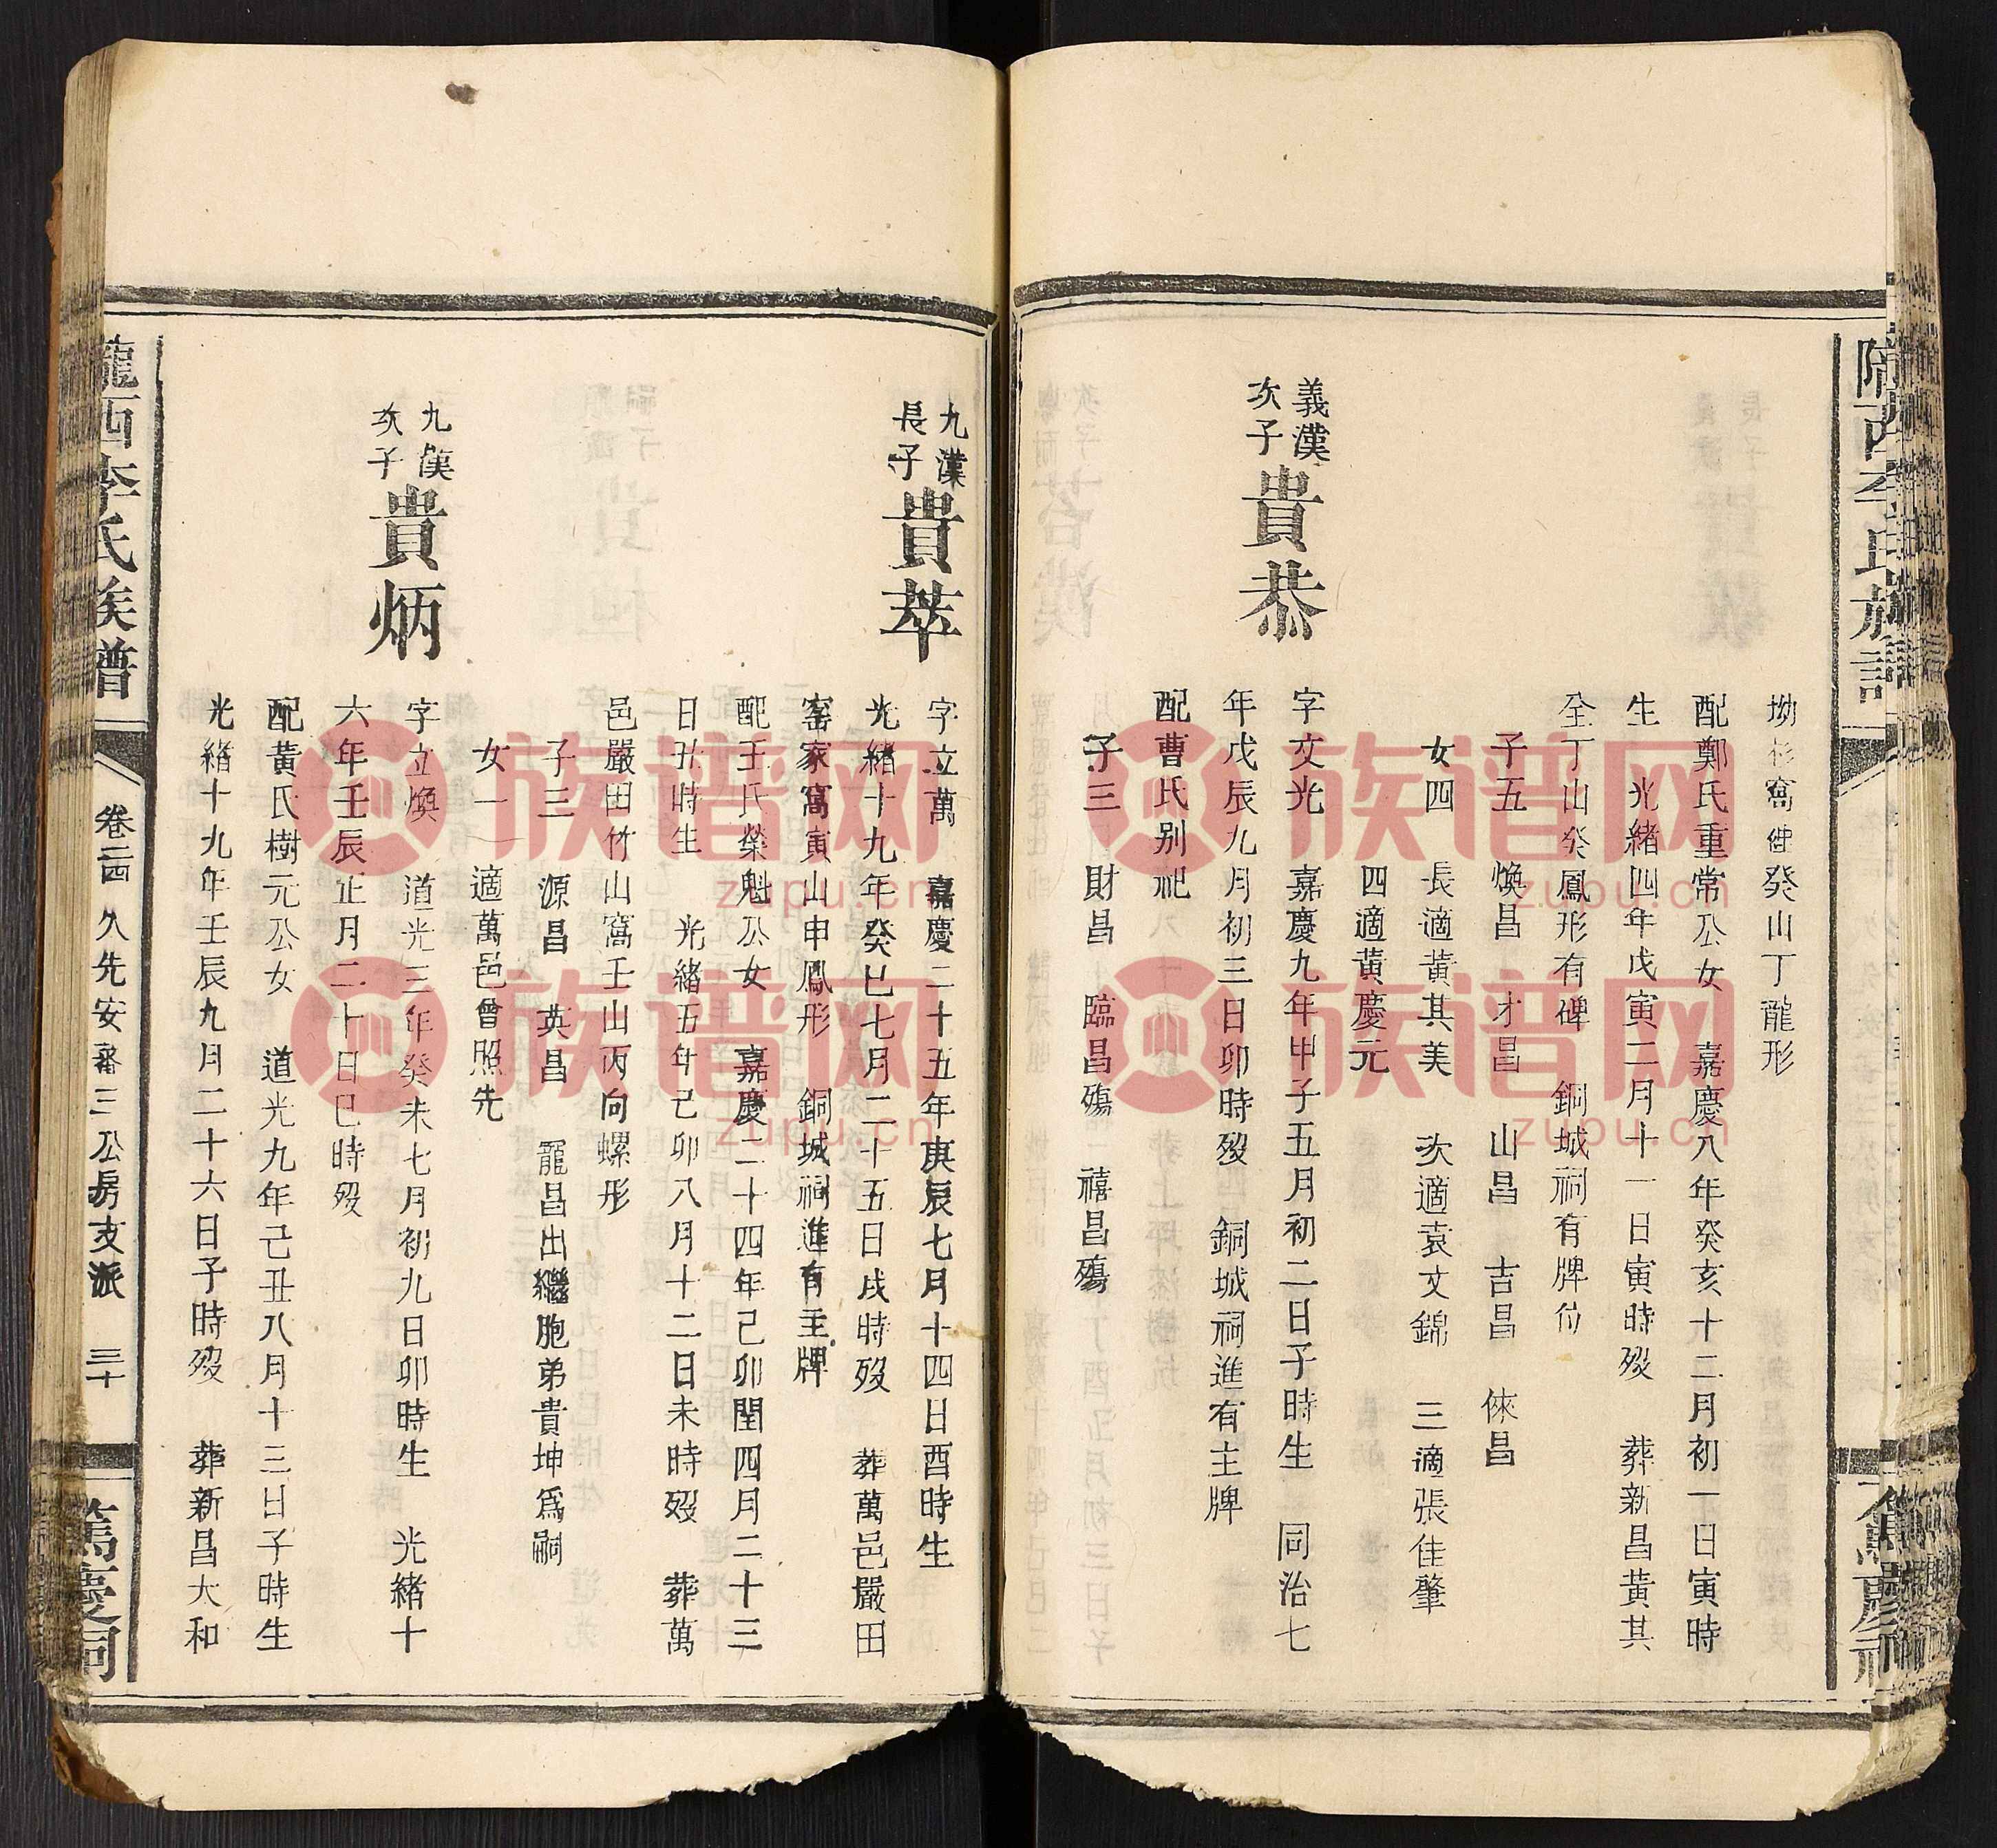 隴西李氏族譜
篤慶祠
坳杉窩仲癸山丁龍形
配鄭氏重常公女　嘉慶八年癸亥十二月初一日寅時
生　光緒四年戊寅二月十一日寅時歿　葬新昌黃其
仝丁山癸鳳形有碑　銅城祠有牌位
子五　煥昌　才昌　山昌　吉昌　倈昌
女四　長適黃其美　次適袁文錦　三適張佳肇
四適黃慶元
義漢
次子
貴恭
字文光　嘉慶九年甲子五月初二日子時生　同治七
年戊辰九月初三日卯時歿　銅城祠進有主牌
配曹氏別祀
子三　財昌　臨昌殤　禧昌殤
九漢
長子
貴萃
字立萬　嘉慶二十五年庚辰七月十四日酉時生
光緒十九年癸巳七月二十五日戌時歿　葬萬邑嚴田
窑家窩寅山申鳳形　銅城祠進有主牌
配王氏榮魁公女　嘉慶二十四年己卯閏四月二十三
日丑時生　光緒五年己卯八月十二日未時歿　葬萬
邑嚴田竹山窩壬山丙向螺形
子三　源昌　英昌　龍昌出繼胞弟貴坤為嗣
女一　適萬邑曾照先
九漢
次子
貴炳
字立煥　道光三年癸未七月初九日卯時生　光緒十
六年壬辰正月二十日巳時歿
配黃氏樹元公女　道光九年己丑八月十三日子時生
光緒十九年壬辰九月二十六日子時歿　葬新昌大和
隴西李氏族譜
卷二四　久先安審三公房支派　三十
篤慶祠
族谱网
zupu.cn
族谱网
zupu.cn
族谱网
zupu.cn
族谱网
zupu.cn